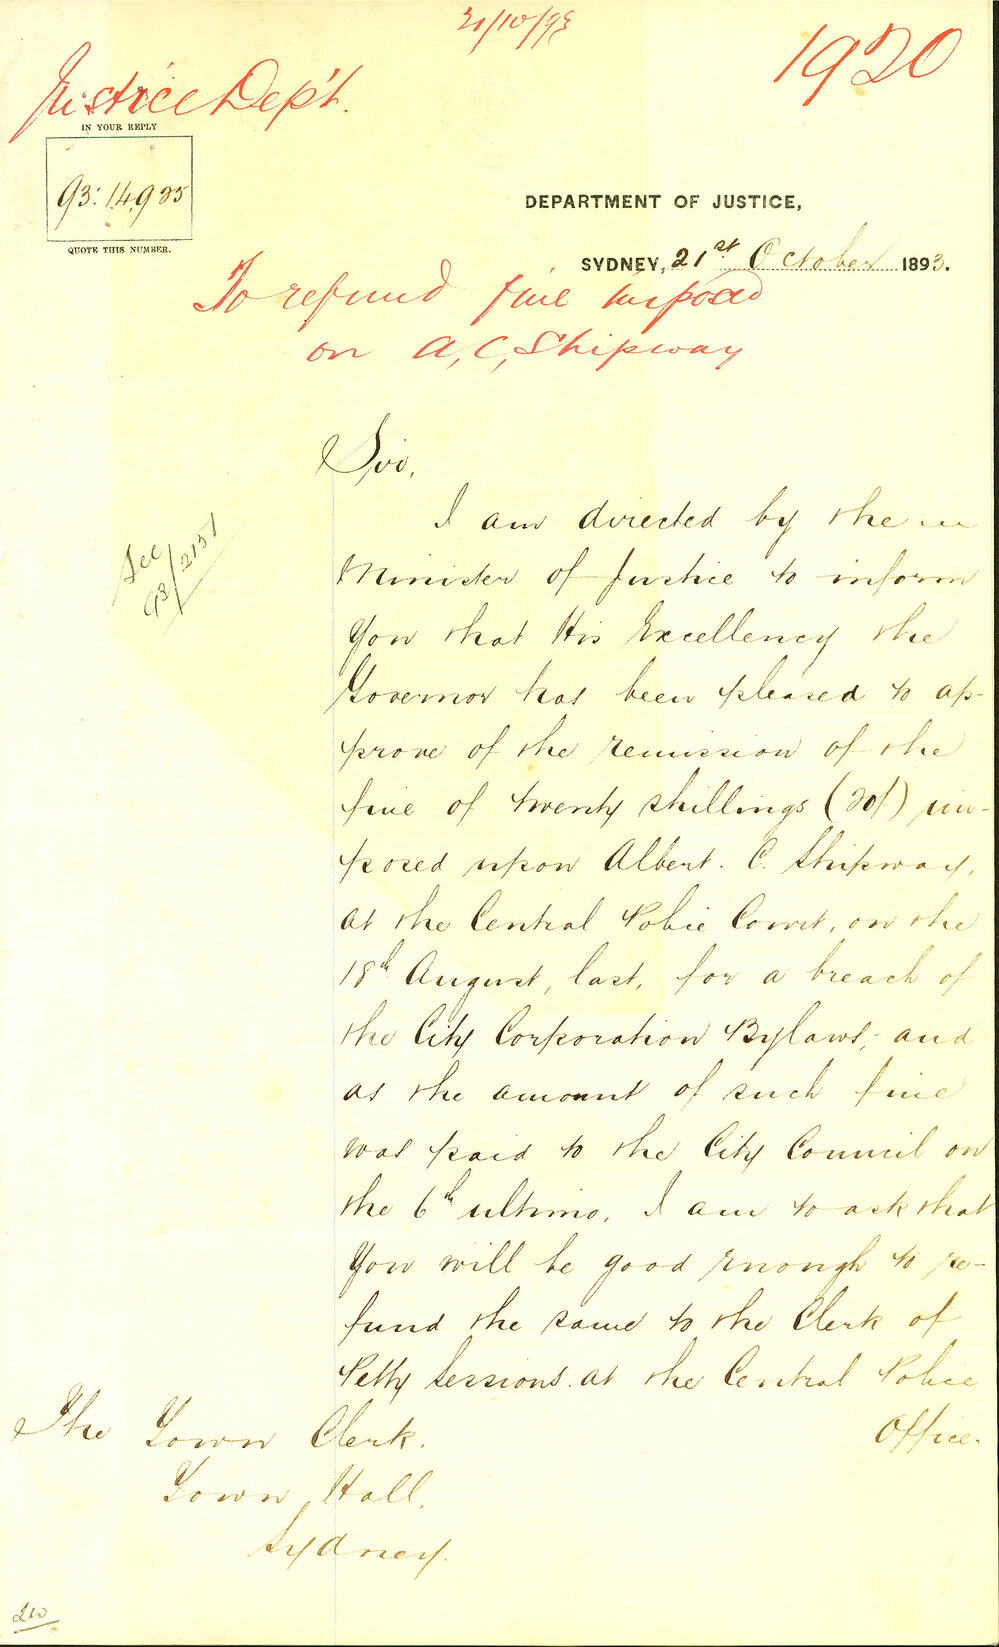 21/10/93
1920
Justice Dep't.
IN YOUR REPLY
93:14985
QUOTE THIS NUMBER.
DEPARTMENT OF JUSTICE,
SYDNEY, 21st October 1893.
To refund fine imposed
on A, C, Shipway
Sir,
I am directed by the
Minister of Justice to inform
you that His Excellency the
Governor has been pleased to ap-
prove of the remission of the
fine of twenty shillings (20/) im-
posed upon Albert. C. Shipway,
at the Central Police Court, on the
18th August, last, for a breach of
the City Corporation Bylaws, and
as the amount of such fine
was paid to the City Council on
the 6th ultimo, I am to ask that
you will be good enough to re-
fund the same to the Clerk of
Petty Sessions at the Central Police
Office.
See
93/2151
The Town Clerk.
Town Hall,
Sydney.